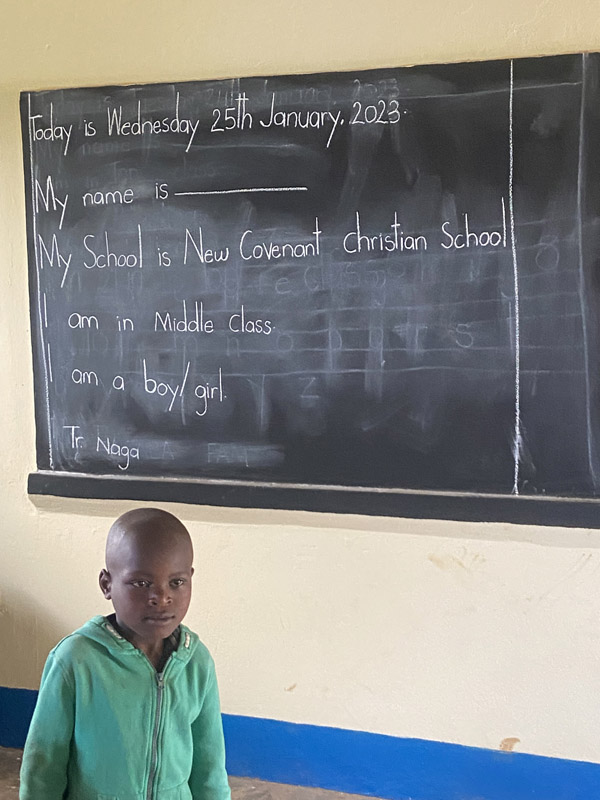 Today is Wednesday 25th January, 2023.
My name is ________
My School is New Covenant Christian School
I am in Middle Class.
I am a boy/girl.
Tr. Naga